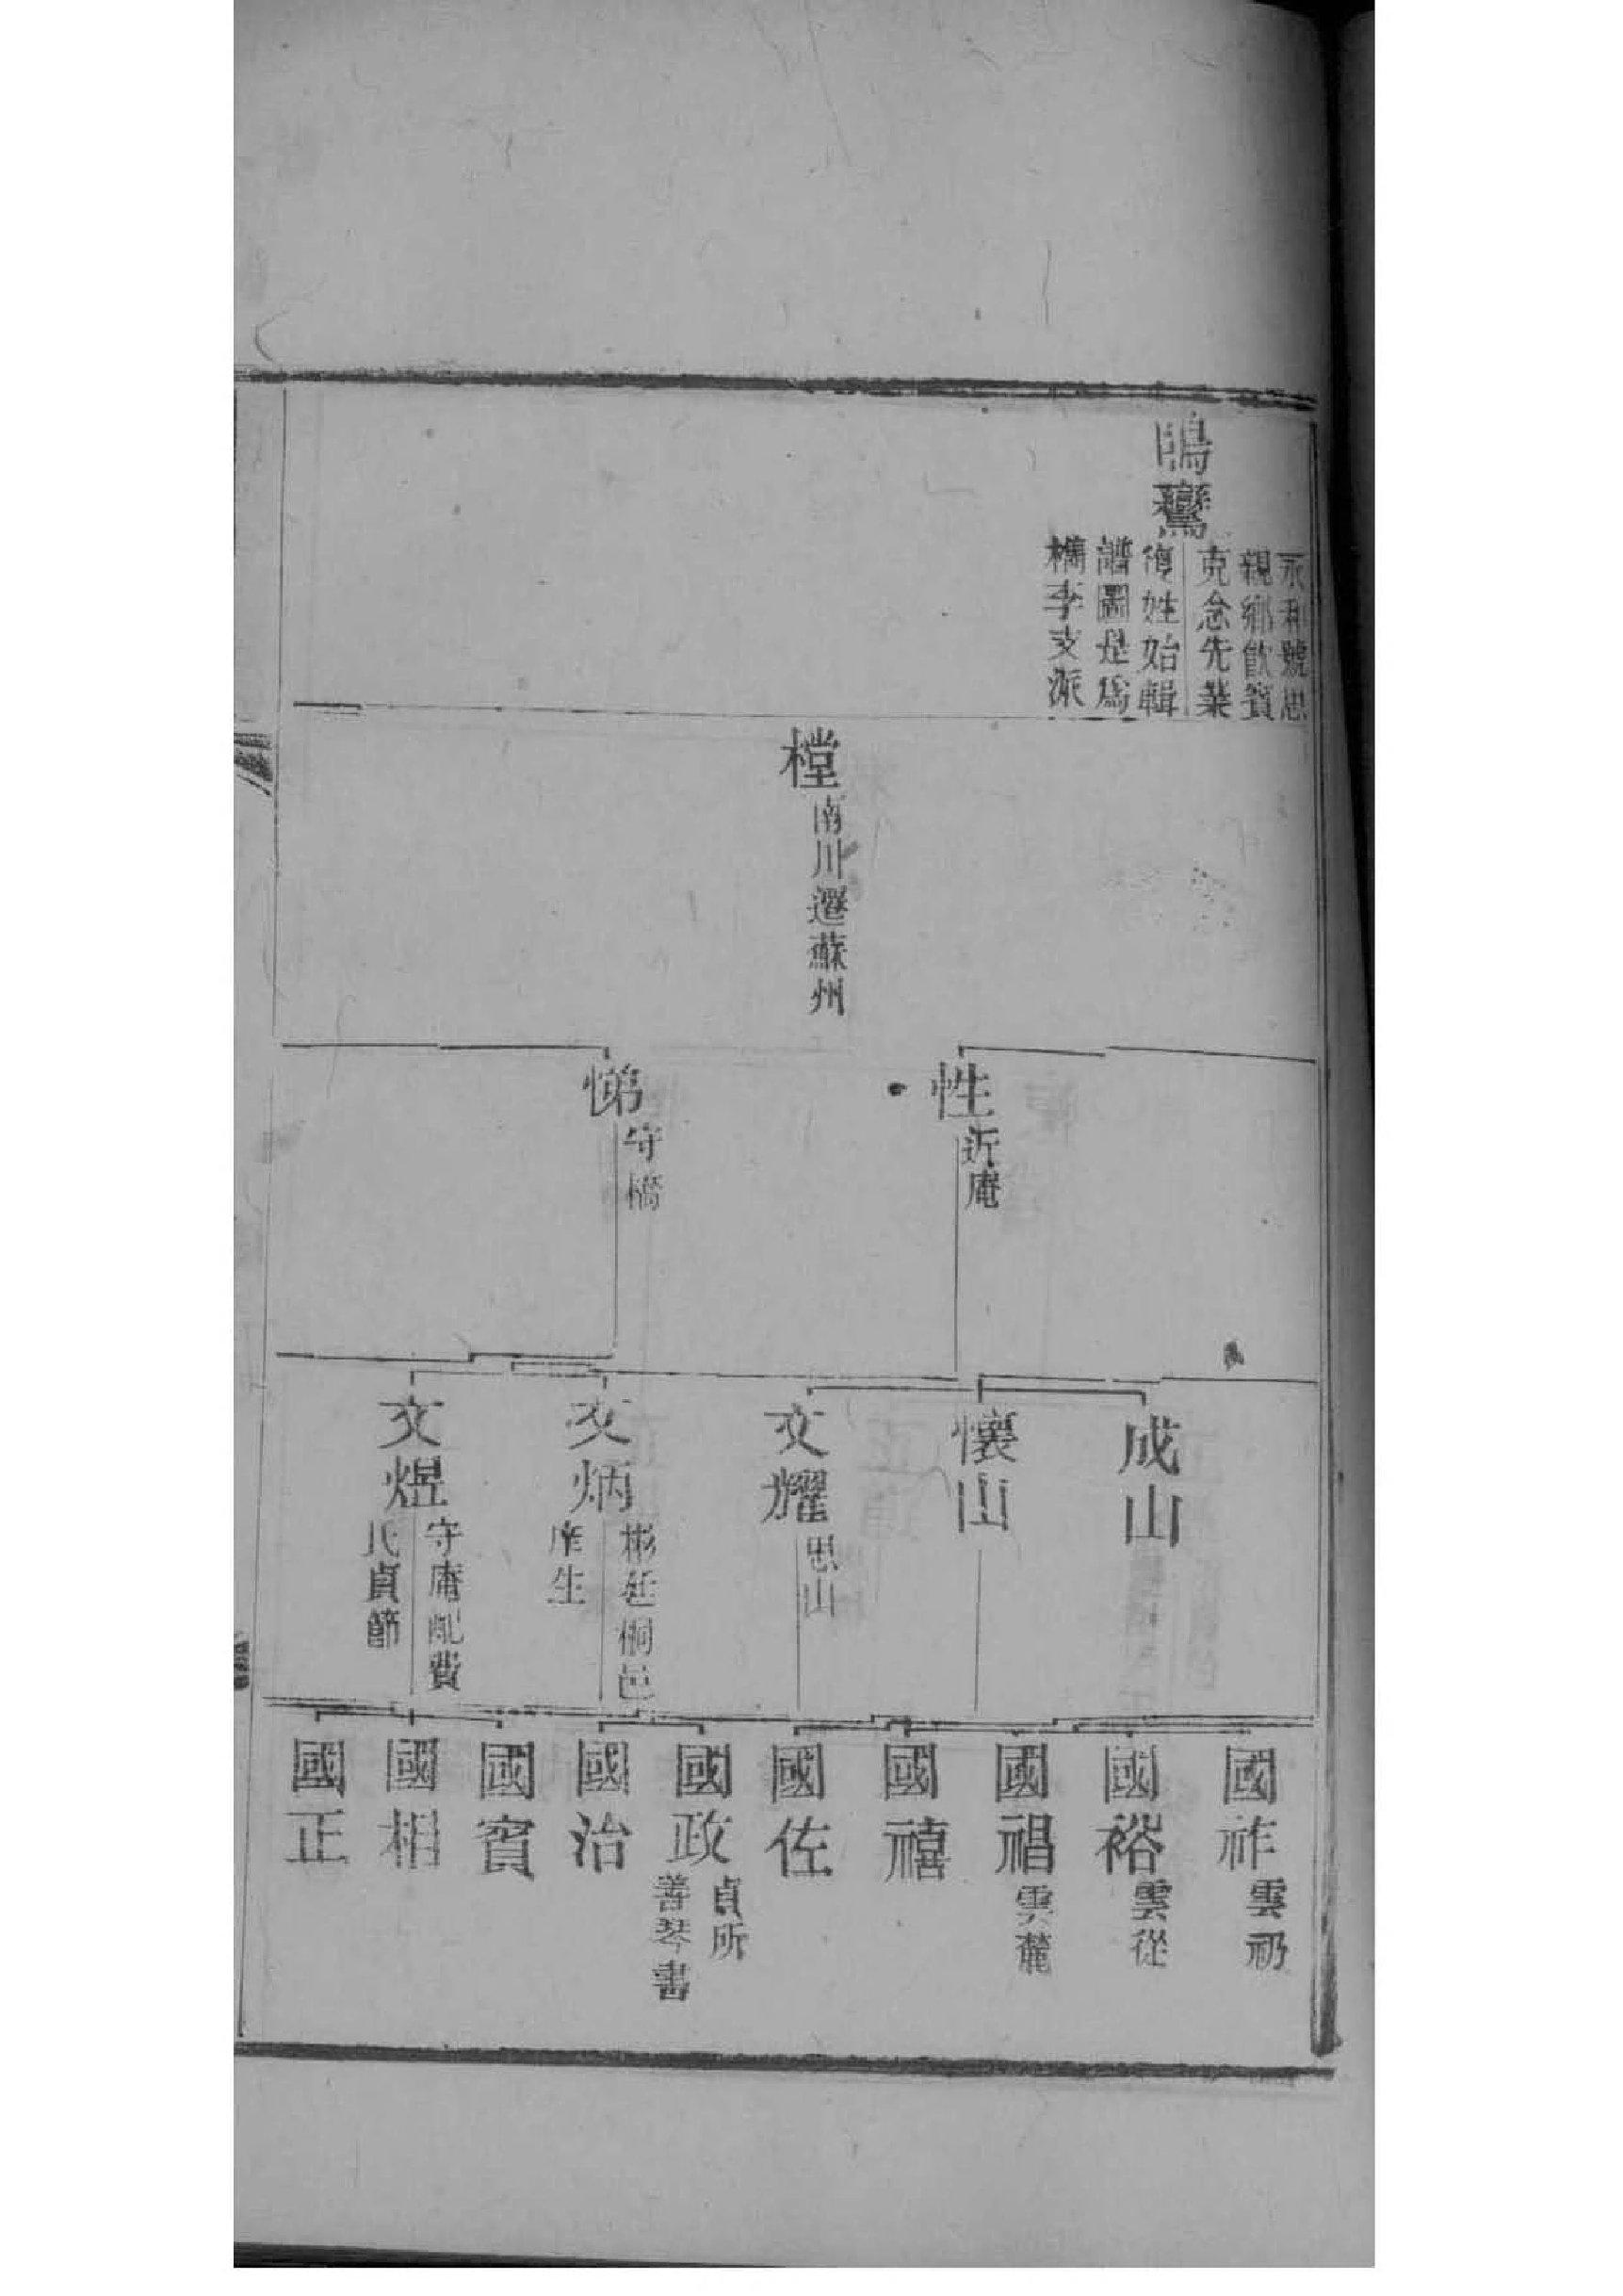 鳴鸞
永和號思
親鄉飲賓
克念先業
復姓始輯
譜圖是爲
檇李支派
樘
南川遷蘇州
性
近庵
悌
守橋
成山
懷山
文耀
思山
文炳
彬廷桐邑
庠生
文煜
守庵配費
氏貞節
國祚
雲礽
國裕
雲從
國祖
雲麓
國禧
國佐
國政
貞所
善琴書
國治
國賓
國相
國正